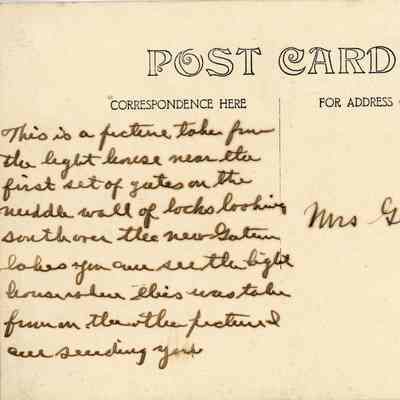 POST CARD
CORRESPONDENCE HERE
FOR ADDRESS
This is a picture taken from
the light house near the
first set of gates on the
middle wall of locks looking
south over the new Gatun
lakes you can see the light
house where this was take
from on the other picture I
am sending you
Mrs G